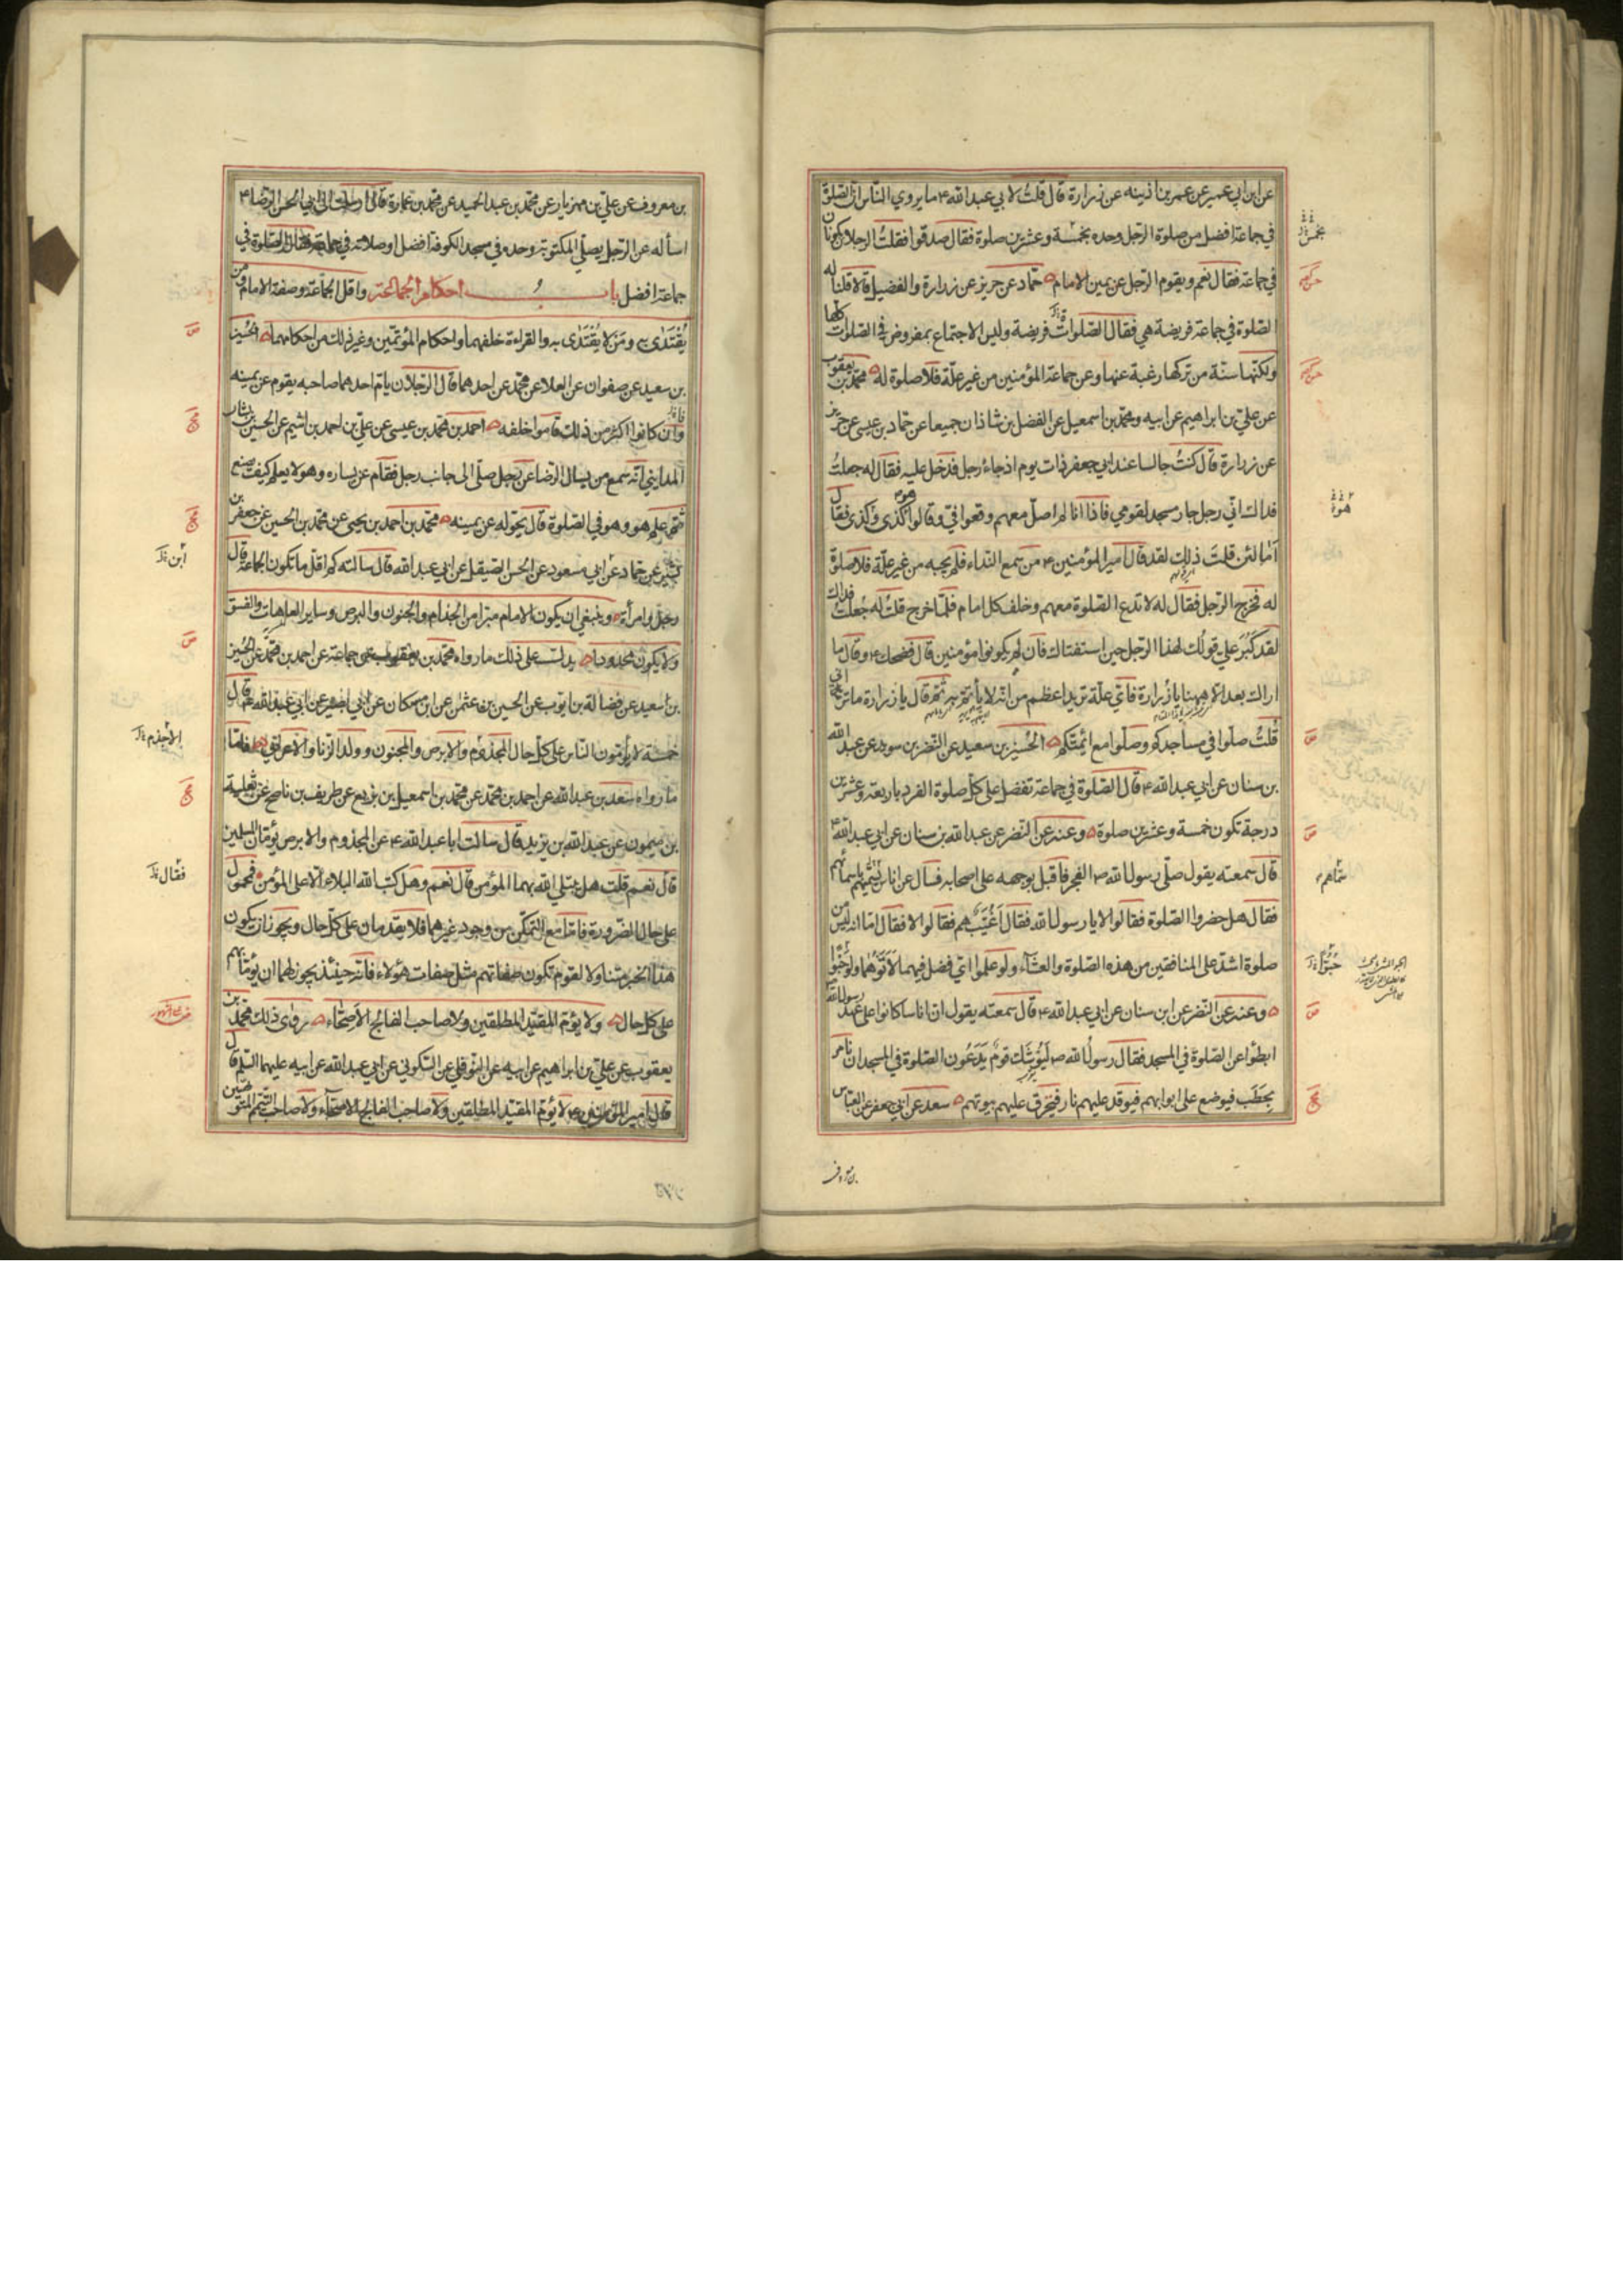 عن ابن ابي عمير عن عمر بن اذينه عن زرارة قال قلتُ لابي عبدالله ع ما يروي الناس انّ الصلوة
في جماعة افضل من صلوة الرجل وحده بخمسة وعشرين صلوة فقال صدقوا فقلتُ الرجلان يكونان
في جماعة فقال نعم ويقوم الرجل عن يمين الامام حمّاد عن حريز عن زرارة والفضيل قالا قلنا له
الصلوة في جماعة فريضة هي فقال الصلوات فريضة وليس الاجتماع بمفروض في الصلوات كلها
ولكنّها سنّة من تركها رغبة عنها وعن جماعة المؤمنين من غير علّة فلا صلوة له محمّد بن يعقوب
عن علي بن ابراهيم عن ابيه ومحمّد بن اسمعيل عن الفضل بن شاذان جميعا عن حمّاد بن عيسى عن حريز
عن زرارة قال كنتُ جالسا عند ابي جعفر ذات يوم اذ جاءه رجل فدخل عليه فقال له جعلتُ
فداك انّي رجل جار مسجد لقومي فاذا انا لم اصلّ معهم وقعوا فيّ وقالوا هو كذى وكذى فقال
أما لئن قلتَ ذلك لقد قال امير المؤمنين ع من سمع النداء فلم يجبه من غير علّة فلا صلوة
له فخرج الرجل فقال له لا تدع الصلوة معهم وخلف كل امام فلمّا خرج قلتُ له جُعلتُ فداك
لقد كَبُرَ علي قولك لهذا الرجل حين استفتاك فان لم يكونوا مؤمنين قال فضحك ع وقال ما
اراك بعد الا ههنا يا زرارة فايّ علّة تريد اعظم من انه لا يأتمّ به ثم قال يا زرارة ما تراني
قُلتُ صلّوا في مساجدكم وصلّوا مع ائمّتكم الحُسين بن سعيد عن النضر بن سويد عن عبدالله
بن سنان عن ابي عبدالله ع قال الصلوة في جماعة تفضل على كل صلوة الفرد باربعة وعشرين
درجة تكون خمسة وعشرين صلوة وعنه عن النضر عن عبدالله بن سنان عن ابي عبدالله ع
قال سمعته يقول صلّى رسول الله ص الفجر فاقبل بوجهه على اصحابه فسال عن اناس يُسمّيهم باسمائهم
فقال هل حضروا الصلوة فقالوا لا يا رسول الله فقال أَغُيَّبٌ هم فقالوا لا فقال اما انه ليس من
صلوة اشدّ على المنافقين من هذه الصلوة والعشآء ولو علموا ايّ فضل فيهما لاتوهما ولو حَبْوًا
وعنه عن النضر عن ابن سنان عن ابي عبدالله ع قال سمعته يقول ان اناسا كانوا على عهد رسول الله
ابطئوا عن الصلوة في المسجد فقال رسولُ الله ص ليُوشك قومٌ يَدَعُون الصلوة في المسجد ان نامر
بحطَب فيوضع على ابوابهم فيوقد عليهم نار فيحرق عليهم بيوتهم سعد عن ابي جعفر عن العبّاس
بن معروف
بخمس
سمّاهم
حَبْوًا
بن معروف عن علي بن مهزيار عن محمّد بن عبد الحميد عن محمّد بن عمارة قال ارسلت الى ابي الحسن الرضا ع
اسأله عن الرجل يصلّي المكتوبة وحده في مسجد الكوفة افضل او صلاته في جماعة فقال الصلوة في
جماعة افضل باب احكام الجماعة واقل الجماعة وصفة الامام ومن
يُقْتَدَى به ومَن لا يُقْتَدَى به والقراءة خلفهما واحكام المؤتمّين وغير ذلك من احكامهما الحُسين
بن سعيد عن صفوان عن العلا عن محمّد عن احدهما قال الرجلان يامّ احدهما صاحبه يقوم عن يمينه
وان كانوا اكثر من ذلك قاموا خلفه احمد بن محمد بن عيسى عن علي بن احمد بن اشيم عن الحسين بن يشار
المدايني انه سمع من يسال الرضا عن رجل صلّى الى جانب رجل فقام عن يساره وهو لا يعلم كيف يصنع
ثم علم هو وهو في الصلوة قال يحوّله عن يمينه محمّد بن احمد بن يحيى عن محمّد بن الحسين عن جعفر بن
بشير عن حمّاد عن ابي مسعود عن الحسن الصيقل عن ابي عبد الله قال سالته كم اقل ما تكون الجماعة قال
رجل وامرأة وينبغي ان يكون الامام مبرّا من الجذام والجنون والبرص وساير العاهات والفسق
ولا يكون محدودا يدلّ على ذلك ما رواه محمّد بن يعقوب عن جماعة عن احمد بن محمّد عن الحُسين
بن سعيد عن فضالة بن ايوب عن الحسين بن عثمن عن ابن مسكان عن ابي بصير عن ابي عبد الله ع قال
خمسة لا يأمّون الناس على كلّ حال المجذوم والابرص والمجنون وولد الزنا والاعرابي فامّا
ما رواه سعد بن عبدالله عن احمد بن محمّد عن محمّد بن اسمعيل بن بزيع عن ظريف بن ناصح عن ثعلبة
بن ميمون عن عبدالله بن يزيد قال سالت ابا عبدالله ع عن المجذوم والابرص يؤمّان المسلمين
قال نعم قلت هل يبتلي الله بهما المؤمن قال نعم وهل كتب الله البلاء الّا على المؤمن فمحمول
على حال الضرورة فامّا مع التمكّن من وجود غيرهما فلا يقدمان على كلّ حال ويجوز ان يكون
هذا الخبر متناولا لقوم تكون صفاتهم مثل صفات هؤلاء فانه حينئذ يجوز لهما ان يؤمّا بهم
على كل حال ولا يؤمّ المقيّد المطلقين ولا صاحب الفالج الاصحّاء روى ذلك محمّد بن
يعقوب عن علي بن ابراهيم عن ابيه عن النوفلي عن السكوني عن ابي عبدالله عن ابيه عليهما السلم قال
قال امير المؤمنين ع لا يؤمّ المقيّد المطلقين ولا صاحب الفالج الاصحّاء ولا صاحب التيمم المتوضّين
ابن
الاجذم
فقال